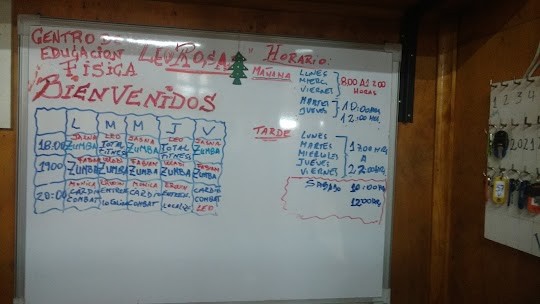 CENTRO DE
EDUCACION "LEO ROSAL" HORARIO:
FISICA
BIENVENIDOS
MAÑANA
LUNES
MIERC.
VIERNES
8:00 A 12:00
HORAS
MARTES
JUEVES
10:00 HRS
12:00 HRS.
TARDE
LUNES
MARTES
MIERCOLES
JUEVES
VIERNES
17:00 HRS
A
22:00 HRS
SABADO 10:00 HRS
12:00 HRS.
L M M J V
18:00 ZUMBA LEO TOTAL FITNESS ZUMBA LEO TOTAL FITNESS ZUMBA
19:00 ZUMBA ZUMBA FABIAN ZUMBA ZUMBA FABIAN ZUMBA
20:00 MONICA CARDIO COMBAT MONICA CARDIO COMBAT CARDIO COMBAT LEO
1 2 3 4
2021